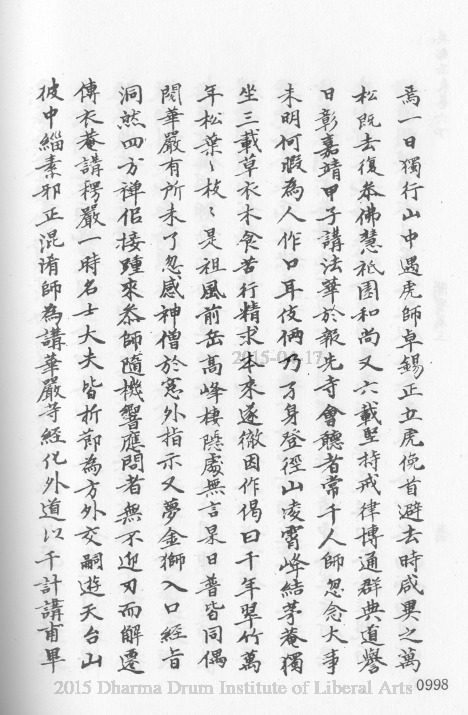 焉一日獨行山中遇虎師卓錫正立虎俛首避去時咸異之萬
松既去復叅佛慧祇園和尚又六載堅持戒律博通群典道譽
日彰嘉靖甲子講法華於報先寺會聽者常千人師忽念大事
未明何暇為人作口耳伎倆乃孑身登徑山凌霄峰結茅菴獨
坐三載草衣木食苦行精求本來遂徹因作偈曰千年翠竹萬
年松葉〻枝〻是祖風前岳高峰棲隱處無言杲日普皆同偶
閱華嚴有所未了忽感神僧於窓外指示又夢金獅入口經旨
洞然四方禅侶接踵來叅師隨機響應問者無不迎刃而解遷
傳衣菴講楞嚴一時名士大夫皆折節為方外交嗣遊天台山
彼中緇素邪正混淆師為講華嚴等經化外道以千計講甫畢
2015-04-17
2015 Dharma Drum Institute of Liberal Arts
0998